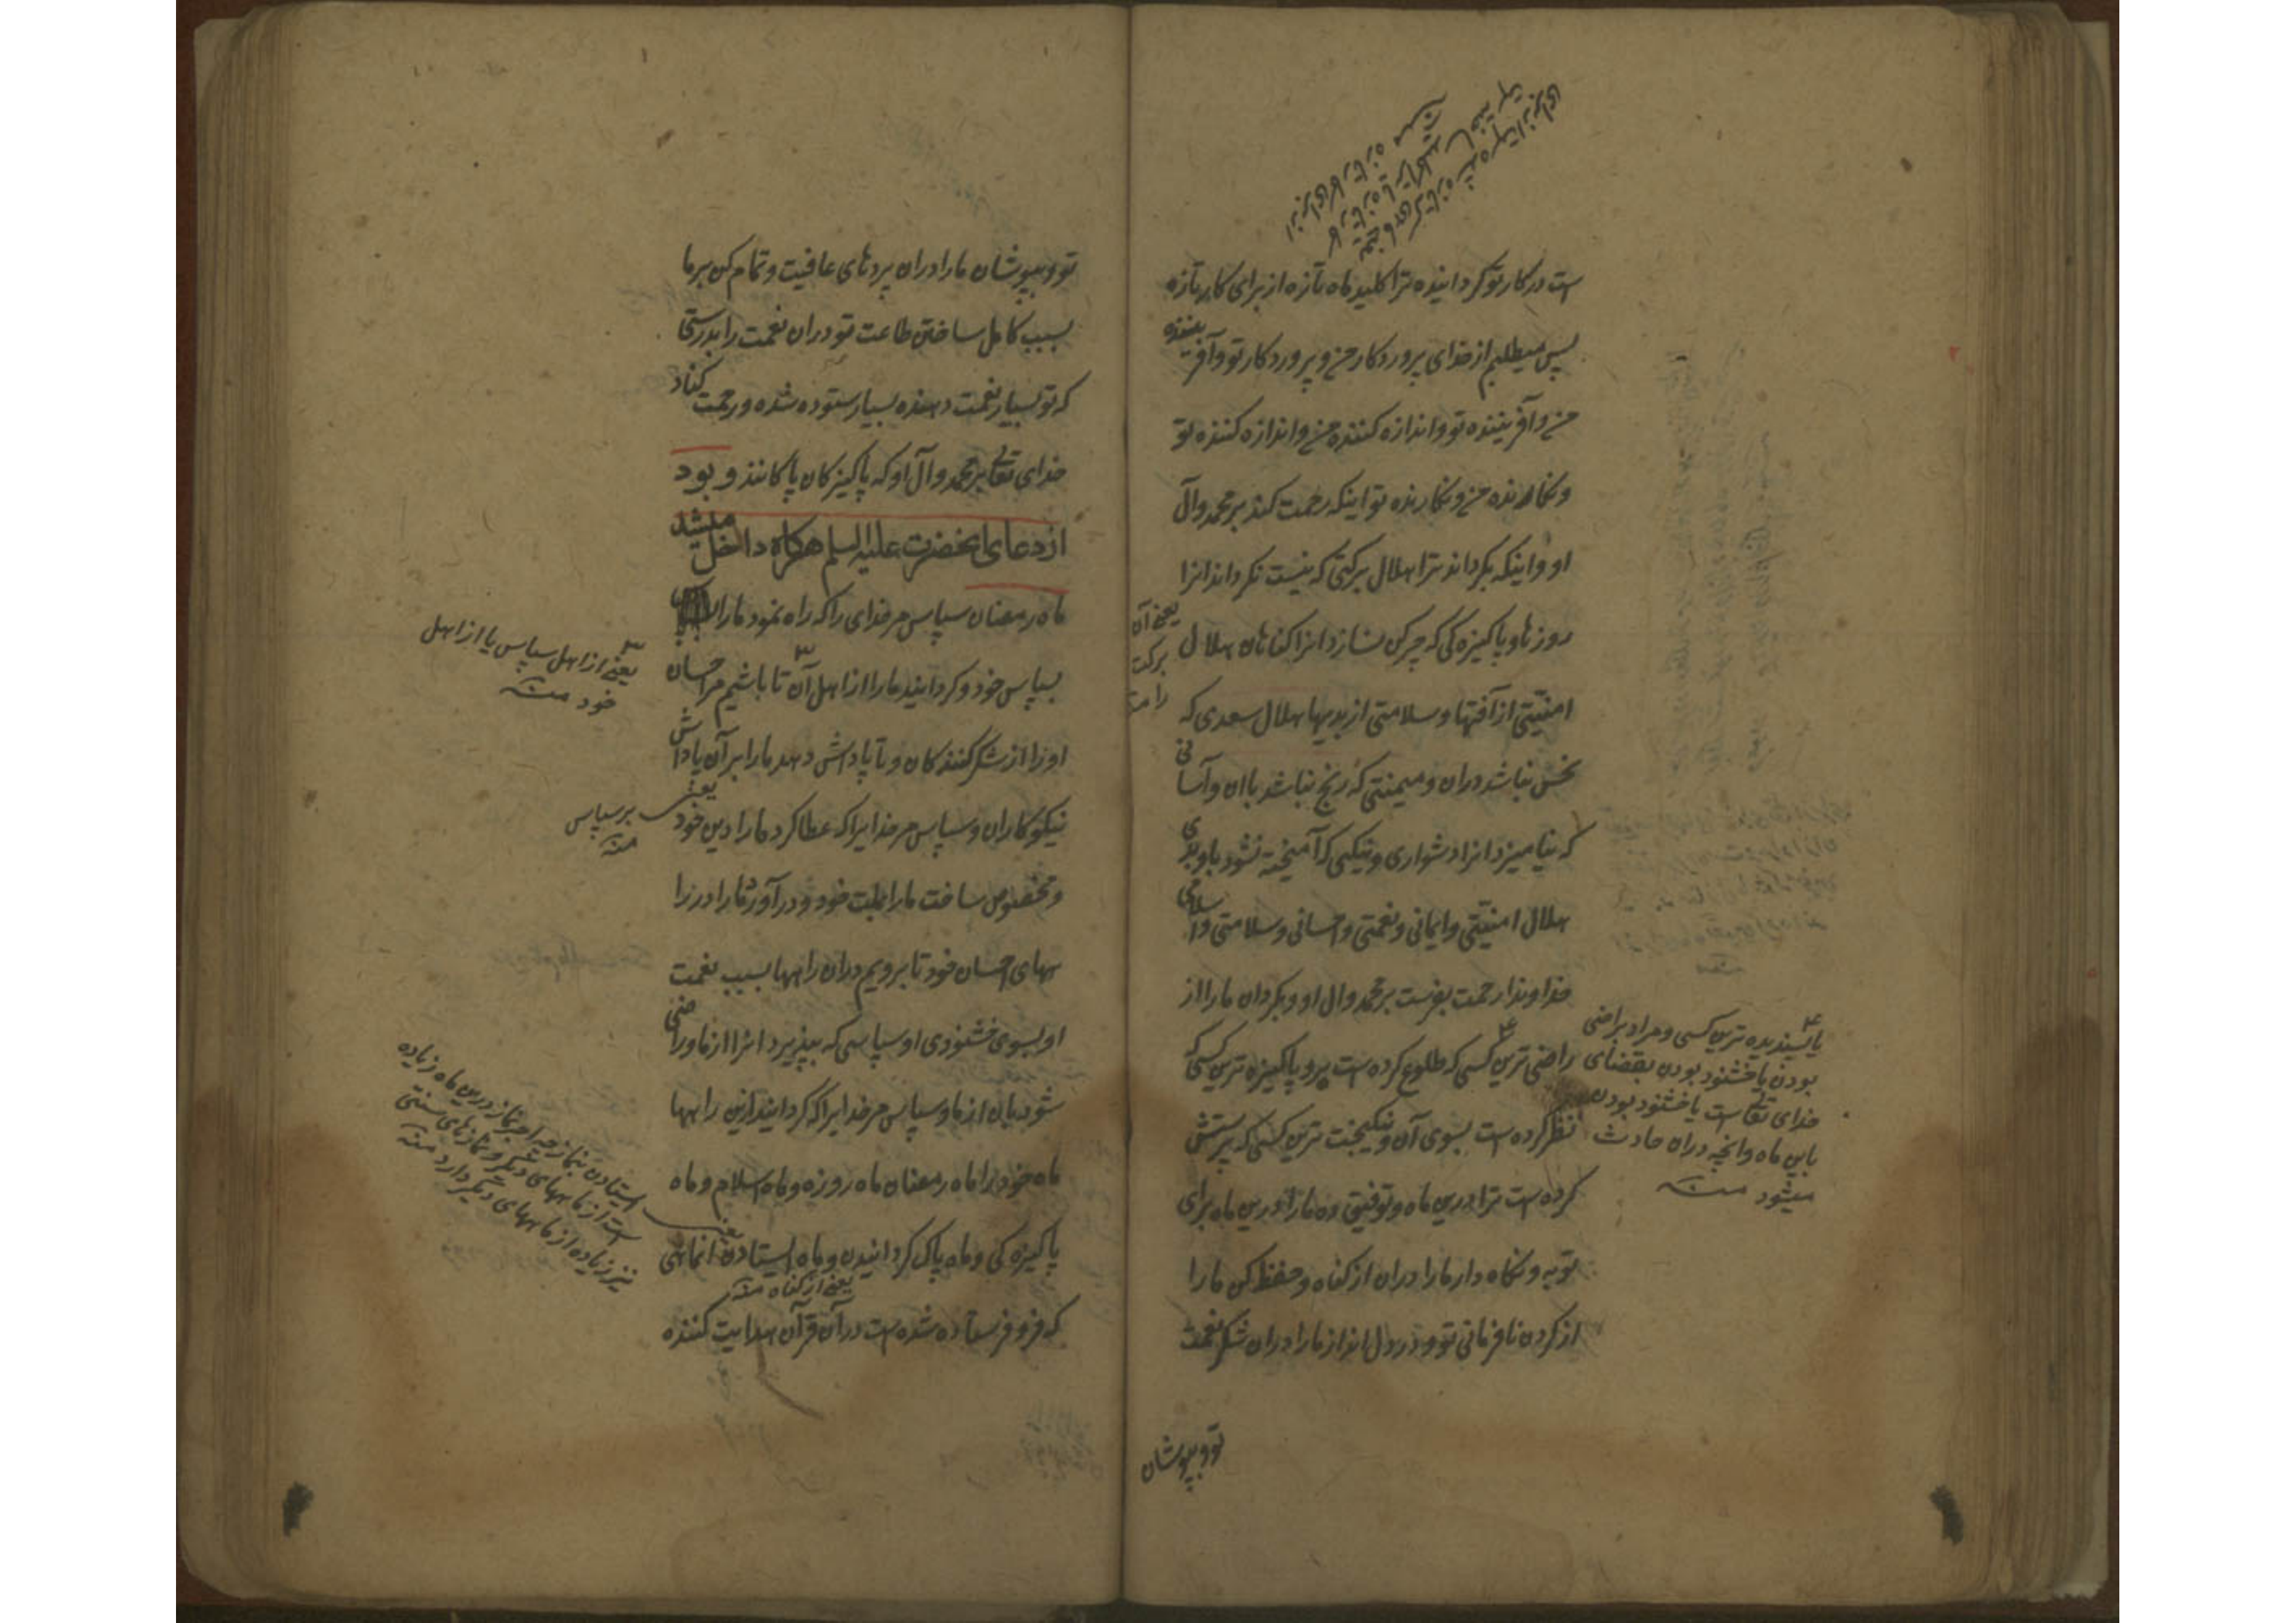 است در کار تو کرداینده ترا کلید ماه تازه از برای کار تازه
پس میطلبم از خدای پروردکار من و پروردکار تو و آفریننده
من و آفریننده تو و اندازه کننده من و اندازه کننده تو
و نکارنده من و نکارنده تو اینکه رحمت کند بر محمد و آل
او و اینکه بکرداند ترا هلال برکتی که نیست نکرداند انرا
روزها و پاکیزه کی که چرکن نسازد انرا کناهان هلال
یعنی آن
برکت
را منه
امنیتی از آفتها و سلامتی از بدیها هلال سعدی که
نحس نباشد دران و میمنتی که رنج نباشد باان و آسانی
که نیامیزد انرا دشواری و نیکیی که آمیخته نشود باو بدی
هلال امنیتی و ایمانی و نعمتی و احسانی و سلامتی و اسلامی
خداوندا رحمت بفرست بر محمد و ال او و بکردان ما را از
راضی ترین کسی که طلوع کرده است برو و پاکیزه ترین کسی که
نظر کرده است بسوی آن و نیکبخت ترین کسی که پرستش
کرده است ترا درین ماه و توفیق ده ما را درین ماه برای
توبه و نکاه دار ما را دران از کناه و حفظ کن ما را
از کردن نافرمانی تو و در دل انداز ما را دران شکر نعمت
یا پسندیده ترین کسی و مراد براضی
بودن یا خشنود بودن بقضای
خدای تعالی است یا خشنود بودن
باین ماه و انچه دران حادث
میشود منه
تو و بپوشان
تو و بپوشان ما را دران پردهای عافیت و تمام کن بر ما
بسبب کامل ساختن طاعت تو دران نعمت را بدرستی
که تو بسیار نعمت دهنده بسیار ستوده شده و رحمت کناد
خدای تعالی بر محمد و آل او که پاکیزکان پاکانند و بود
از دعای انحضرت علیه السلم هرکاه داخل میشد
ماه رمضان سپاس مر خدای را که راه نمود ما را
بسپاس خود و کردانید ما را از اهل آن تا باشیم مر احسان
یعنی از اهل سپاس یا از اهل
خود منه
او را از شکر کنندکان و تا پاداش دهد ما را بر آن پاداش
نیکوکاران و سپاس مر خدایرا که عطا کرد ما را دین خود
یعنی بر سپاس
منه
و مخصوص ساخت ما را بملت خود و در آورد ما را در را
ههای احسان خود تا برویم دران راهها بسبب نعمت
او بسوی خشنودی او سپاسی که بپذیرد انرا از ما و راضی
شود بان از ما و سپاس مر خدایرا که کردانید ازین راهها
ماه خود را ماه رمضان ماه روزه و ماه اسلام و ماه
پاکیزه کی و ماه پاک کردانیدن و ماه ایستادن انماهی
یعنی از کناه منه
که فرو فرستاده شده است در آن قرآن هدایت کننده
یعنی ایستادن بنماز چه اجر نماز درین ماه زیاده
است از ماههای دیکر و نمازهای سنتی
نیز زیاده از ماههای دیکر دارد منه